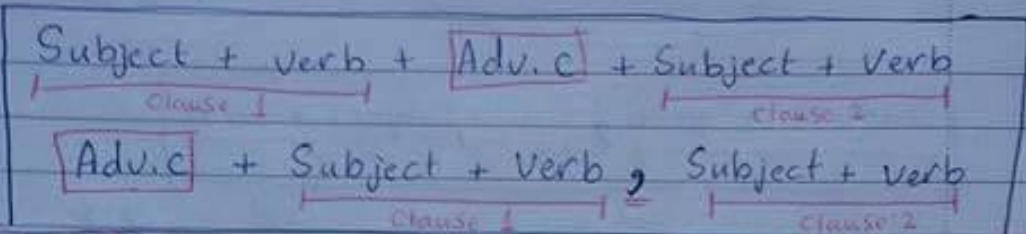 Subject + verb + Adv. c + Subject + Verb
Clause 1 Clause 2
Adv. c + Subject + Verb , Subject + verb
Clause 1 Clause 2